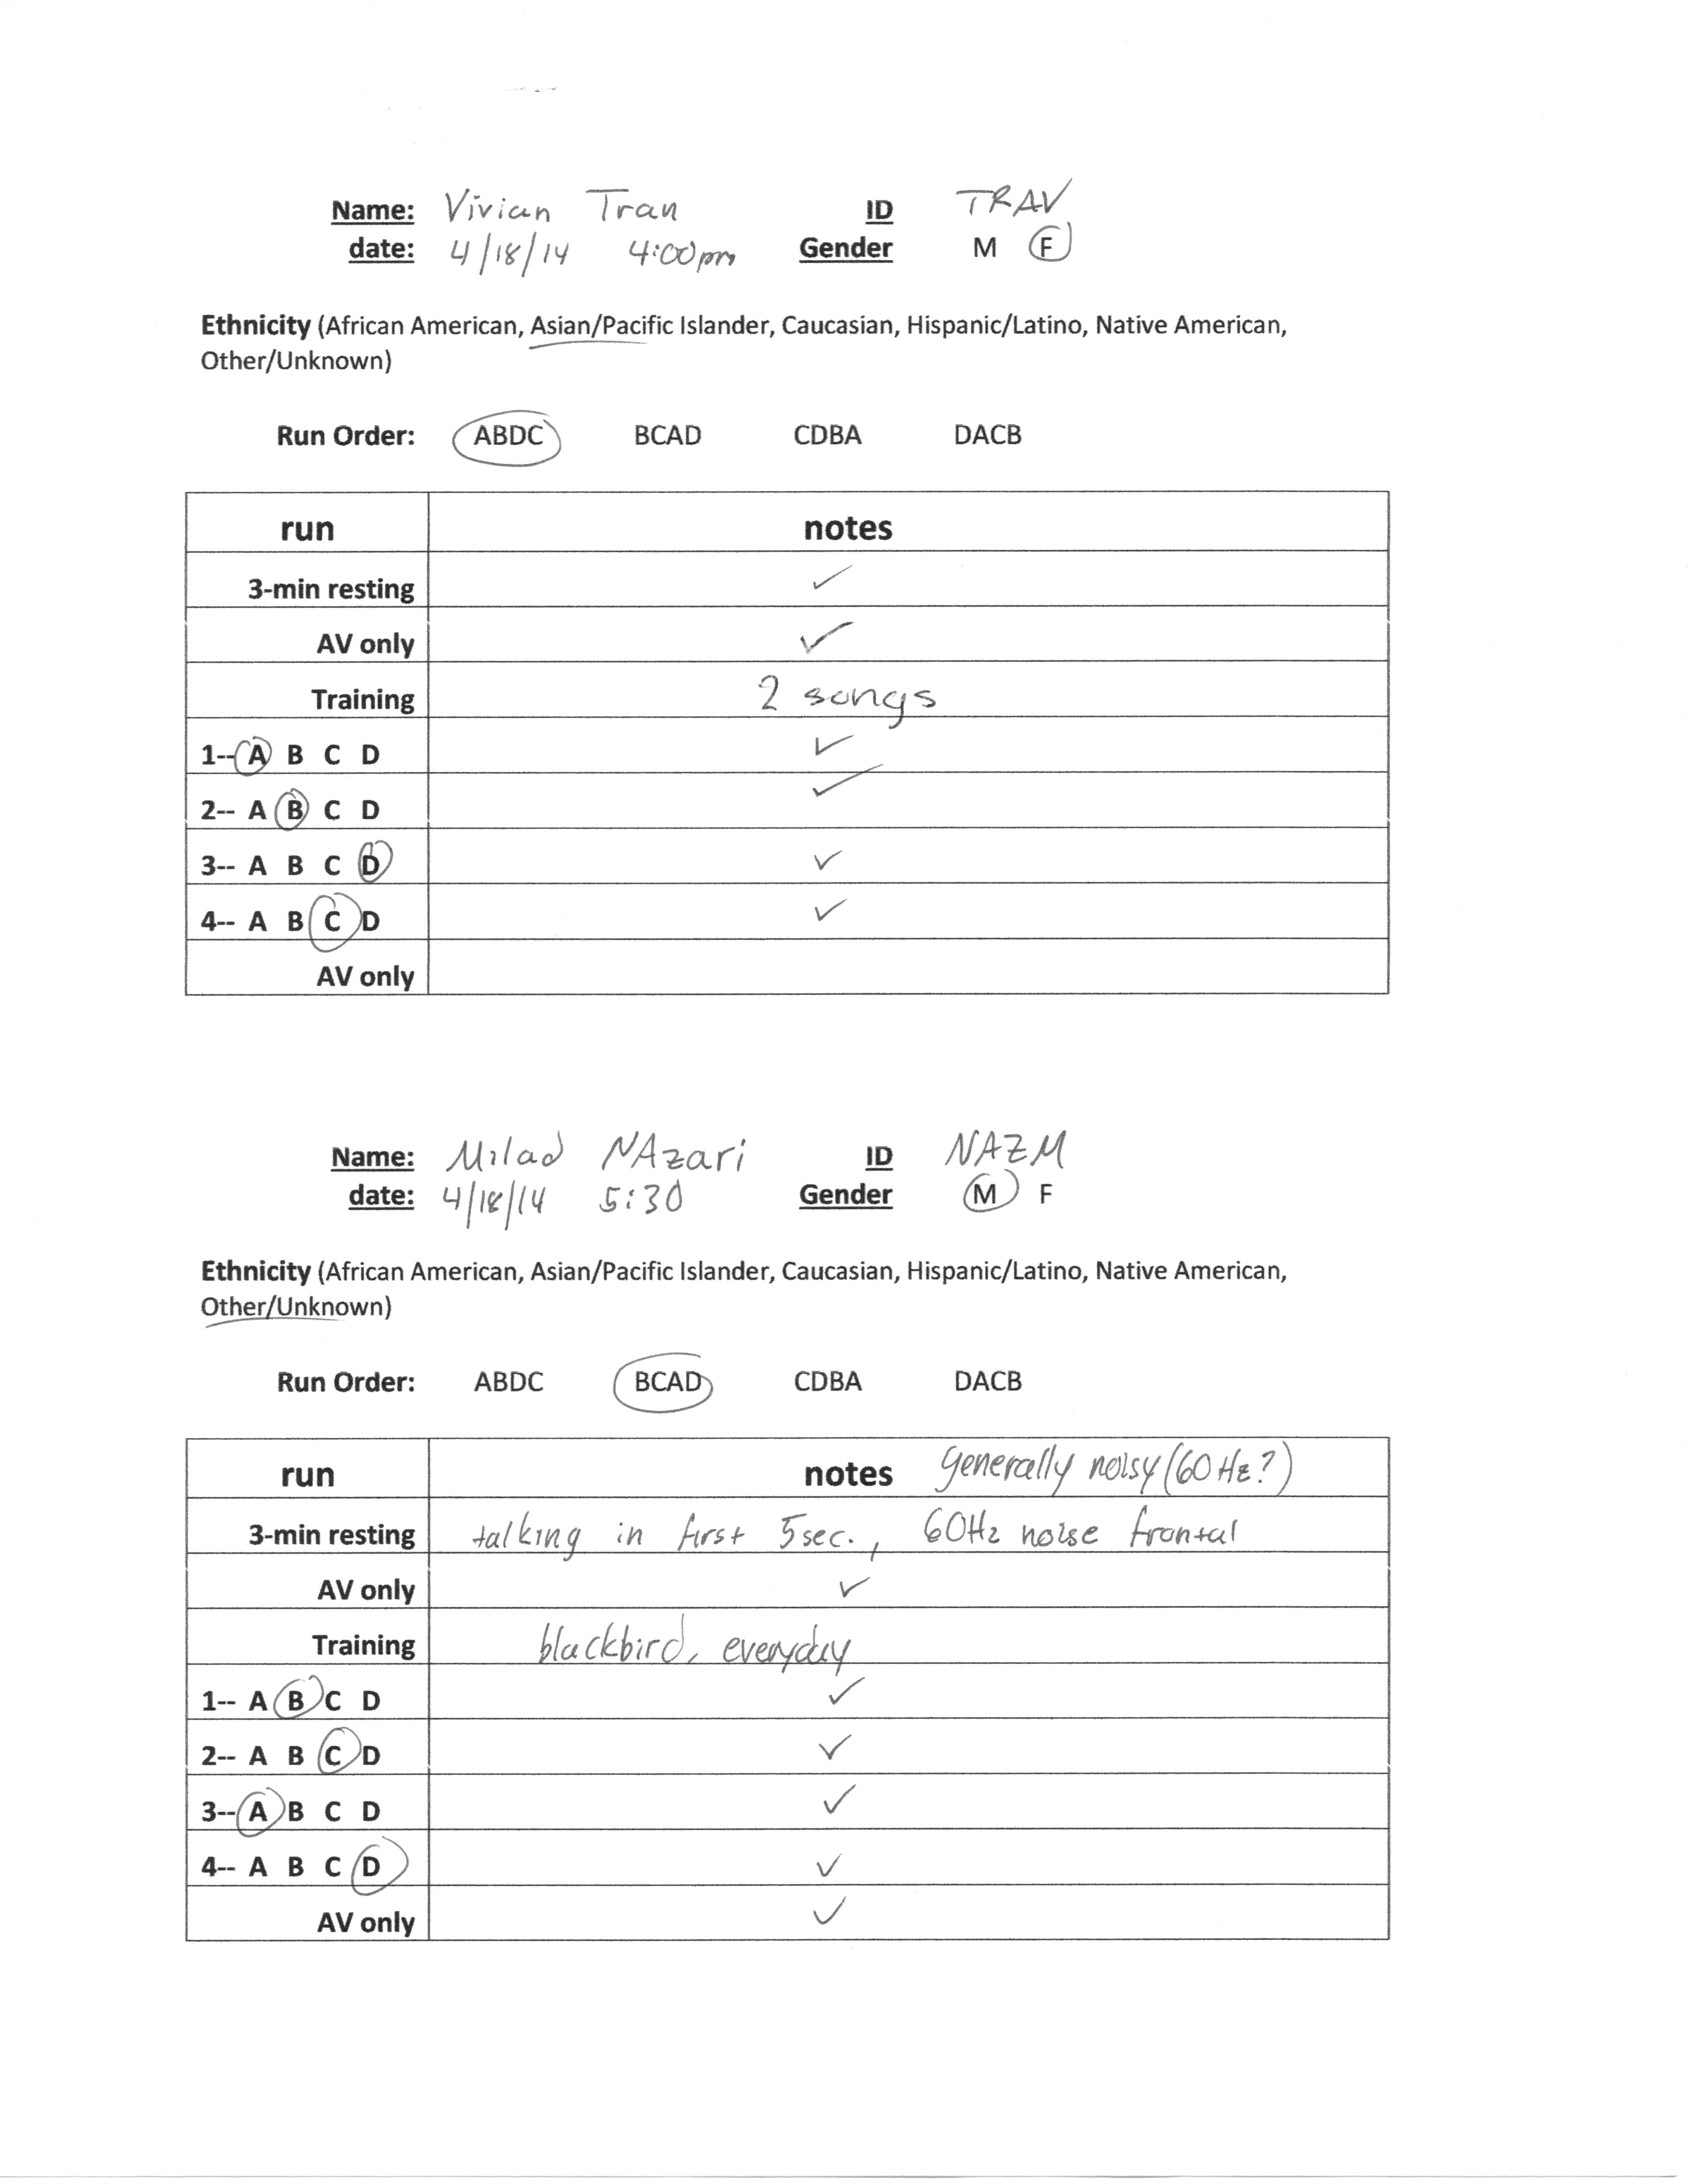 Name: Vivian Tran ID TRAV
date: 4/18/14 4:00pm Gender M F
Ethnicity (African American, Asian/Pacific Islander, Caucasian, Hispanic/Latino, Native American,
Other/Unknown)
Run Order: ABDC BCAD CDBA DACB
run notes
3-min resting ✓
AV only ✓
Training 2 songs
1-- A B C D ✓
2-- A B C D ✓
3-- A B C D ✓
4-- A B C D ✓
AV only
Name: Milad NAzari ID NAZM
date: 4/18/14 5:30 Gender M F
Ethnicity (African American, Asian/Pacific Islander, Caucasian, Hispanic/Latino, Native American,
Other/Unknown)
Run Order: ABDC BCAD CDBA DACB
run notes generally noisy (60 Hz?)
3-min resting talking in first 5sec., 60Hz noise frontal
AV only ✓
Training blackbird, everyday
1-- A B C D ✓
2-- A B C D ✓
3-- A B C D ✓
4-- A B C D ✓
AV only ✓